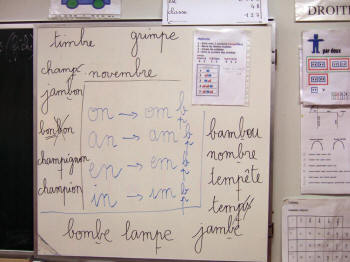 classe
48
127
DROITE
timbre grimpe
champ novembre
jambon
bonbon
champignon
champion
on → om b p
an → am b p
en → em b p
in → im b p
bambou
nombre
tempête
temps
bombe lampe jambe
par deux